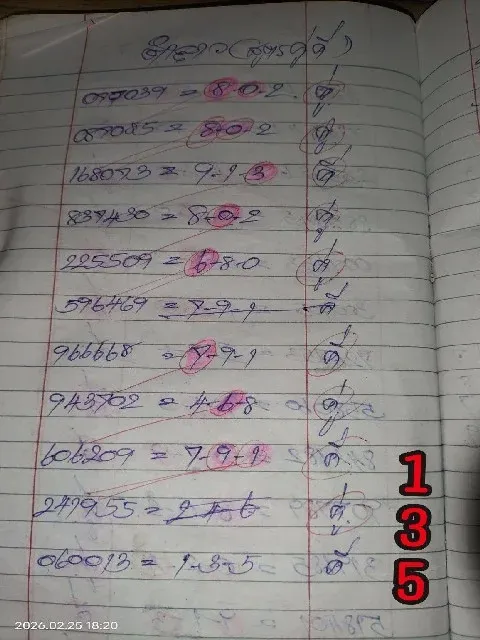 (สูตรคู่คี่)
097039 = 8-0-2 คู่
087085 = 8-0-2 คู่
168073 = 9-1-3 คี่
837430 = 8-0-2 คู่
225509 = 6-8-0 คู่
596469 = 7-9-1 คี่
966668 = 7-9-1 คี่
943702 = 4-6-8 คู่
606209 = 7-9-1 คี่
247955 = 2-4-6 คู่
060013 = 1-3-5 คี่
1
3
5
2026.02.25 18:20